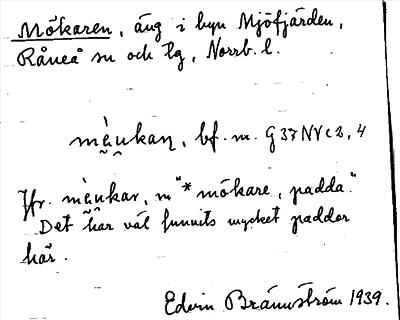 Mökaren, äng i byn Mjöfjärden,
Råneå sn och tg, Norrb. l.
mèukaṇ, bf. m. G 37 NV c 2, 4
Jfr. mèukar, m "*mökare, padda".
Det har väl funnits mycket paddor
här.
Edvin Brännström 1939.